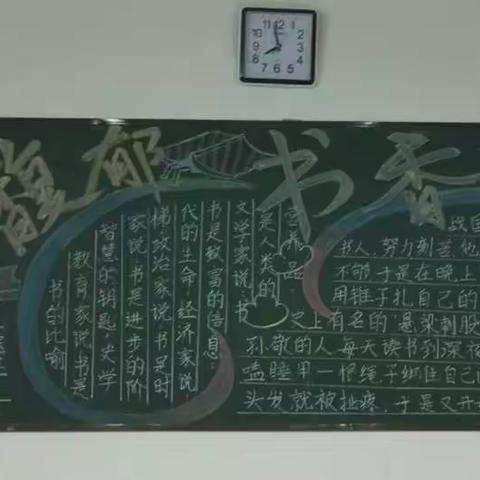 11 12
10 2
9 3
8 4
7 6 5
郁书香
书的比喻
教育家说 书是
智慧的钥匙 史学
家说 书是进步的阶
梯 政治家说 书是时
代的生命 经济家说
书是致富的信息
文学家说 书
是人类的
营养品
战国
书人,努力刻苦 他
不够 于是在晚上
用锥子扎自己的
史上有名的"悬梁刺股
孙敬的人,每天读书到深夜
瞌睡 用一根绳子绑住自己
头发,就被扯疼,于是又开